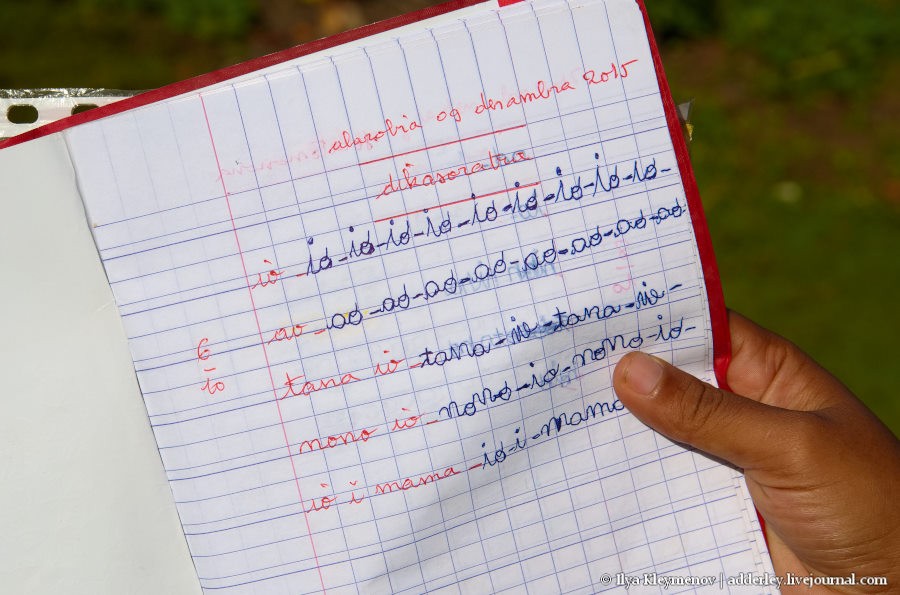 alarobia 09 desambra 2015
dikasoratra
iò - io - io - io - io - io - io - io - io - io -
ao - ao - ao - ao - ao - ao - ao - ao - ao
tana iò - tana - io - tana - io -
nono iò - nono - io - nono - io -
iò i mama - io - i - mama
6
10
© Ilya Kleymenov | adderley.livejournal.com